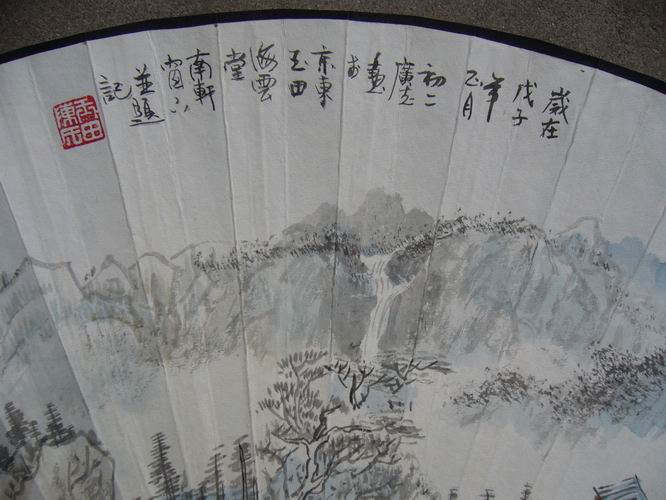 歲在
戊子
年
正月
初二
廣
畫
於
京東
玉田
海雲
堂
南軒
窗下
並題
記
玉田